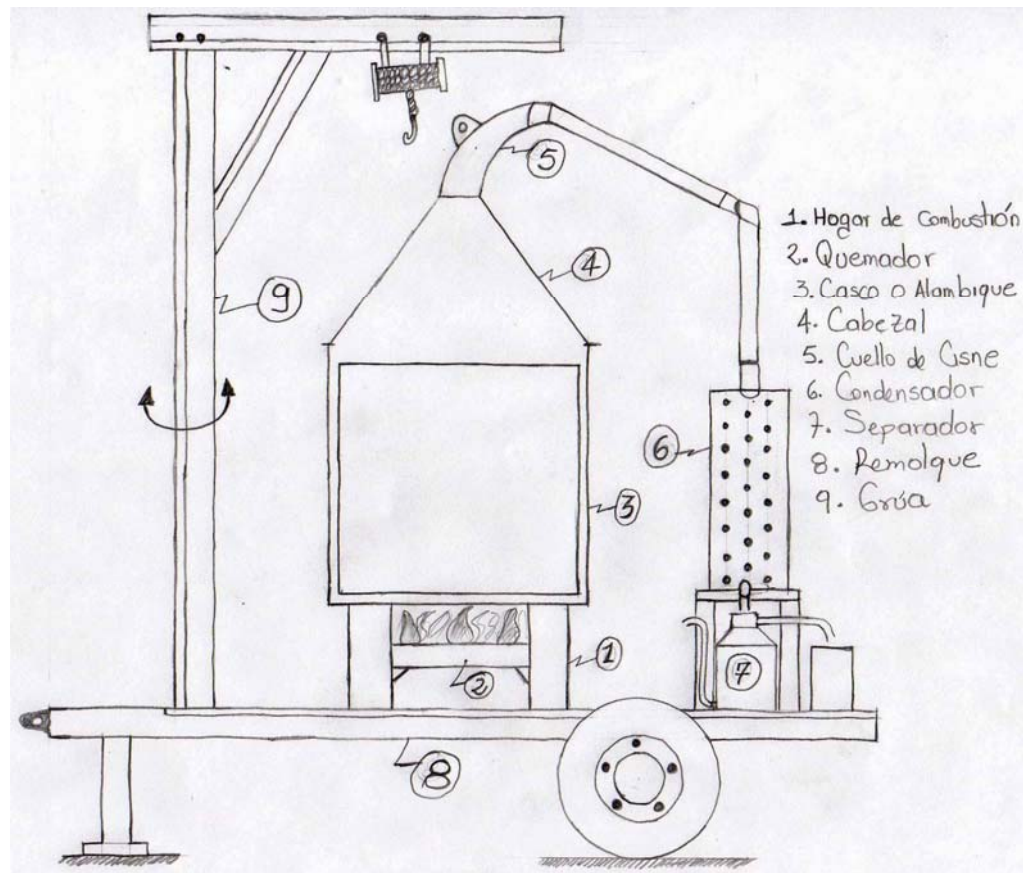 1. Hogar de Combustión
2. Quemador
3. Casco o Alambique
4. Cabezal
5. Cuello de Cisne
6. Condensador
7. Separador
8. Remolque
9. Grúa
5
4
9
6
3
1
2
7
8